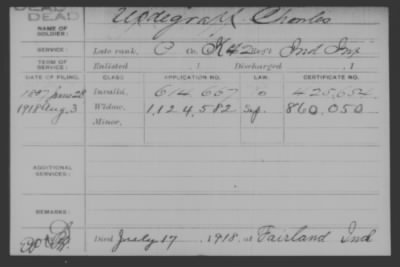 DEAD
DEAD
Updegraph, Charles
NAME OF SOLDIER:
SERVICE: Late rank, C Co. K 42 Reg't Ind Inf
TERM OF SERVICE: Enlisted , 1 Discharged , 1
DATE OF FILING. CLASS. APPLICATION NO. LAW. CERTIFICATE NO.
June 28 Invalid, 614,667 425,654
1918 Aug. 3 Widow, 1,124,582 860,050
Minor,
ADDITIONAL SERVICES:
REMARKS:
Died July 17, 1918, at Fairland Ind